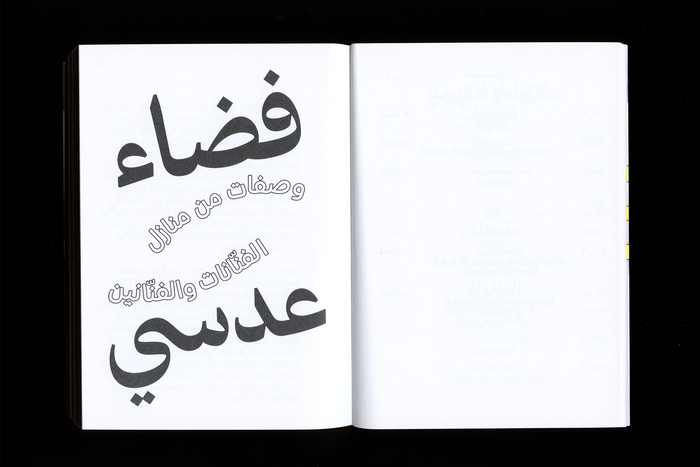 فضاء
وصفات من منازل
الفنّانات والفنّانين
عدسي